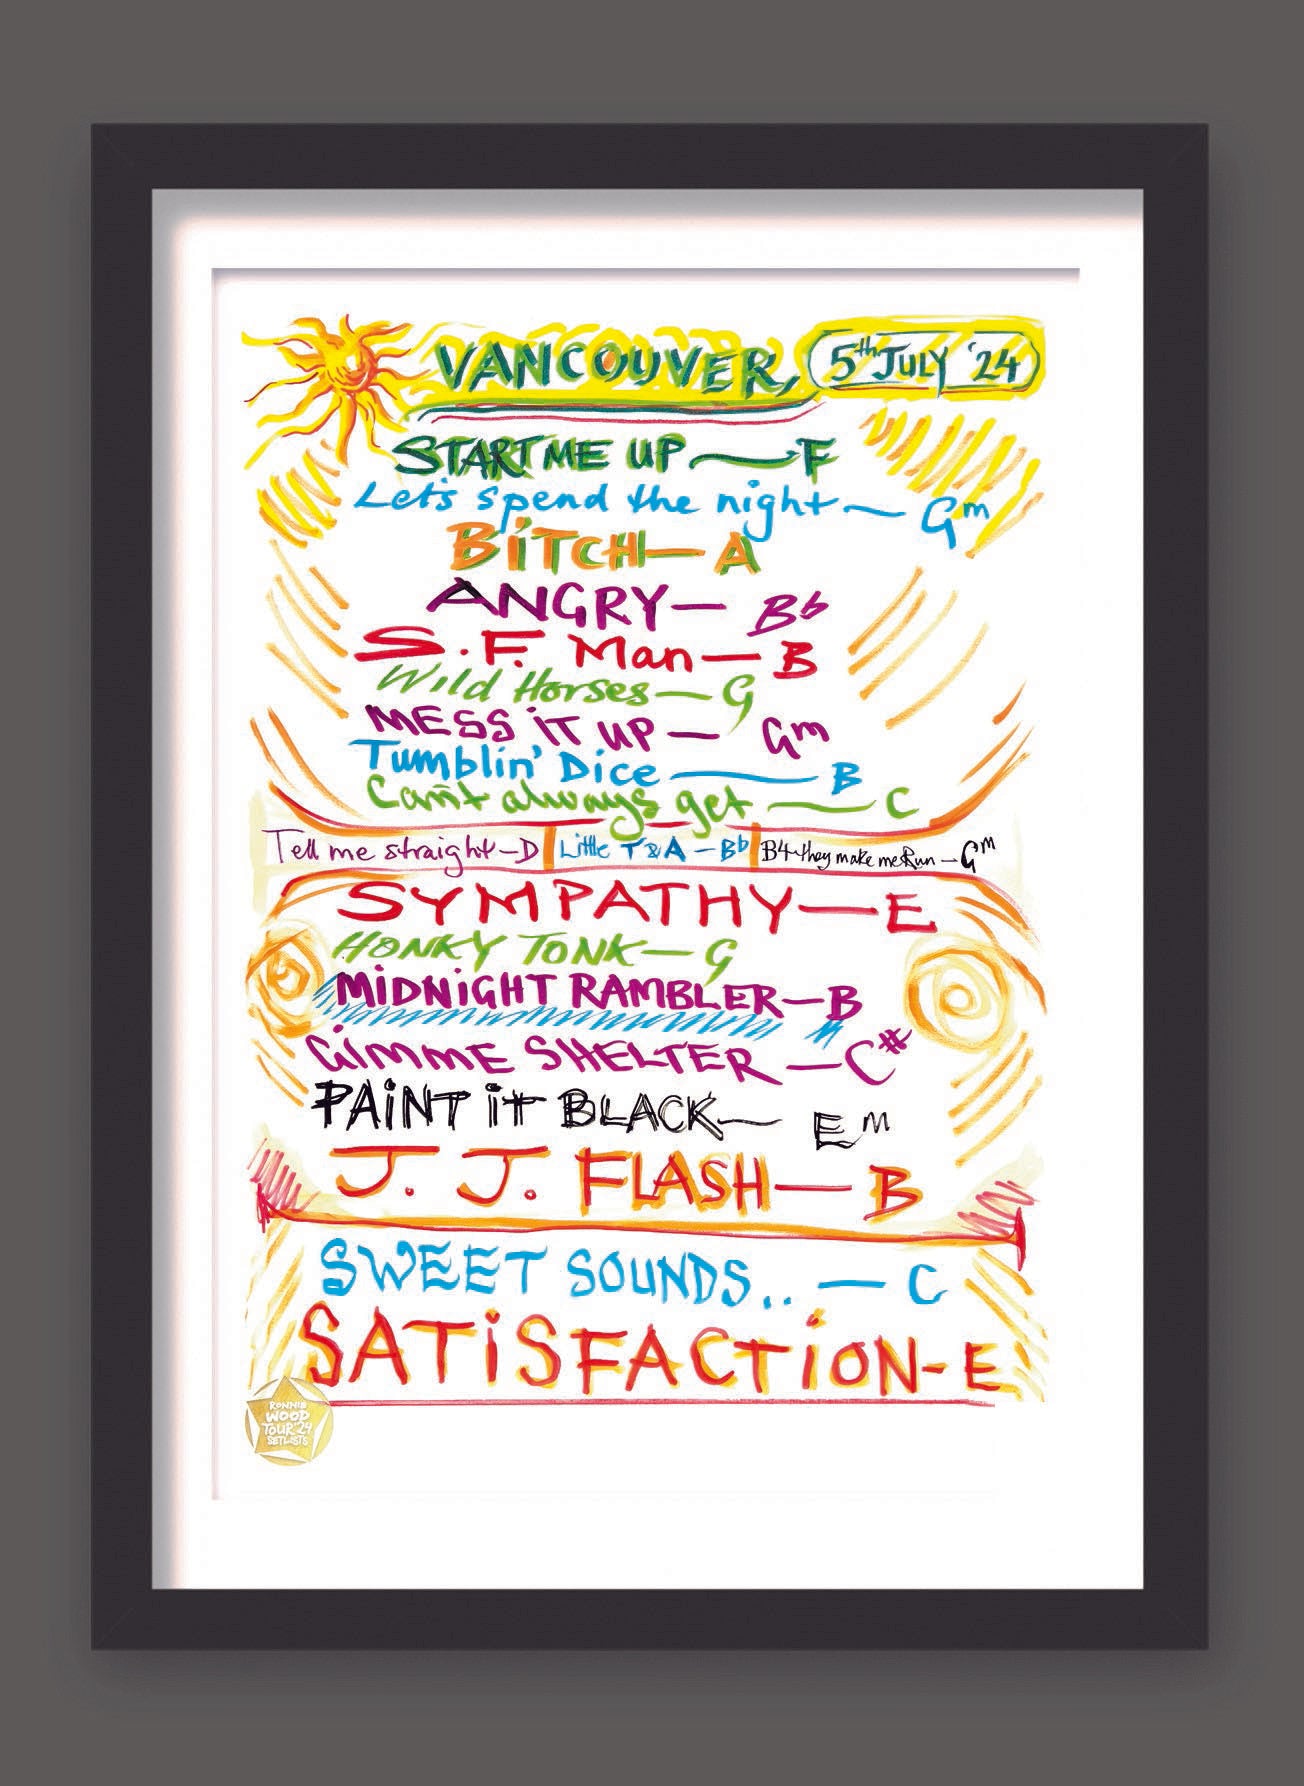 VANCOUVER, 5th JULY '24
START ME UP — F
Let's spend the night — Gm
BiTCH — A
ANGRY — Bb
S.F. Man — B
Wild Horses — G
MESS iT UP — Gm
Tumblin' Dice — B
Can't always get — C
Tell me straight – D Little T & A – Bb B4 they make me Run – Gm
SYMPATHY — E
HONKY TONK — G
MiDNiGHT RAMBLER — B
GiMME SHELTER — C#
PAiNT iT BLACK — Em
J. J. FLASH — B
SWEET SOUNDS.. — C
SATiSFACTiON - E
RONNIE
WOOD
TOUR '24
SETLISTS